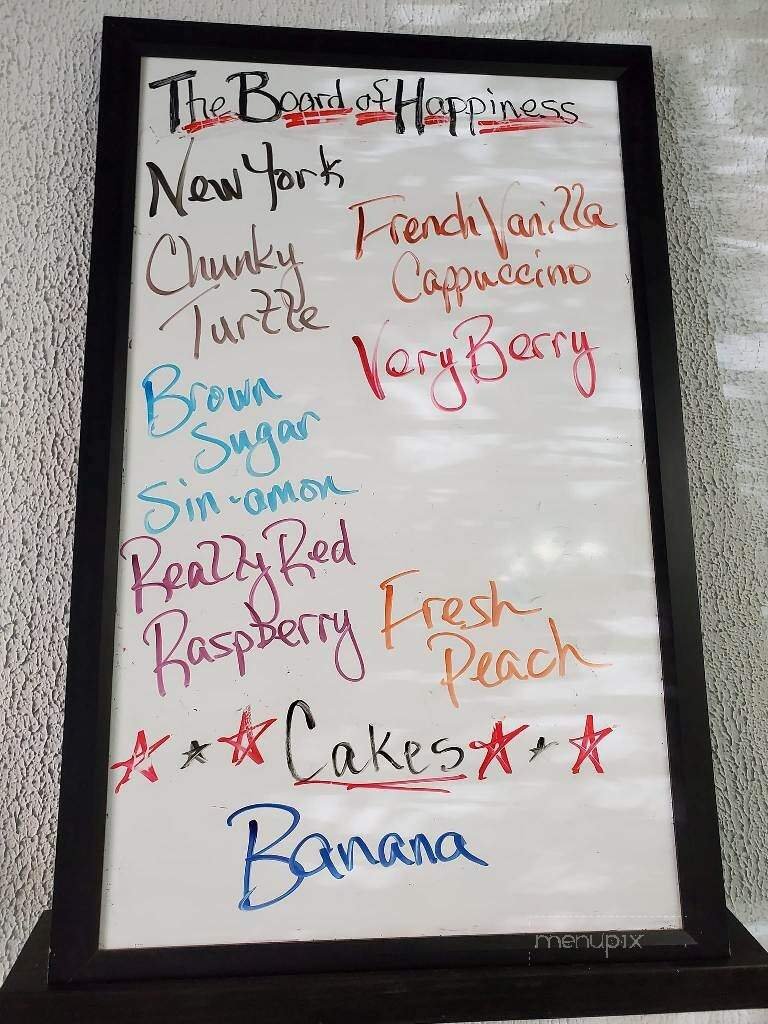 The Board of Happiness
New York
Chunky
Turtle
Brown
Sugar
Sin-amon
Really Red
Raspberry
French Vanilla
Cappuccino
Very Berry
Fresh
Peach
Cakes
Banana
menupix